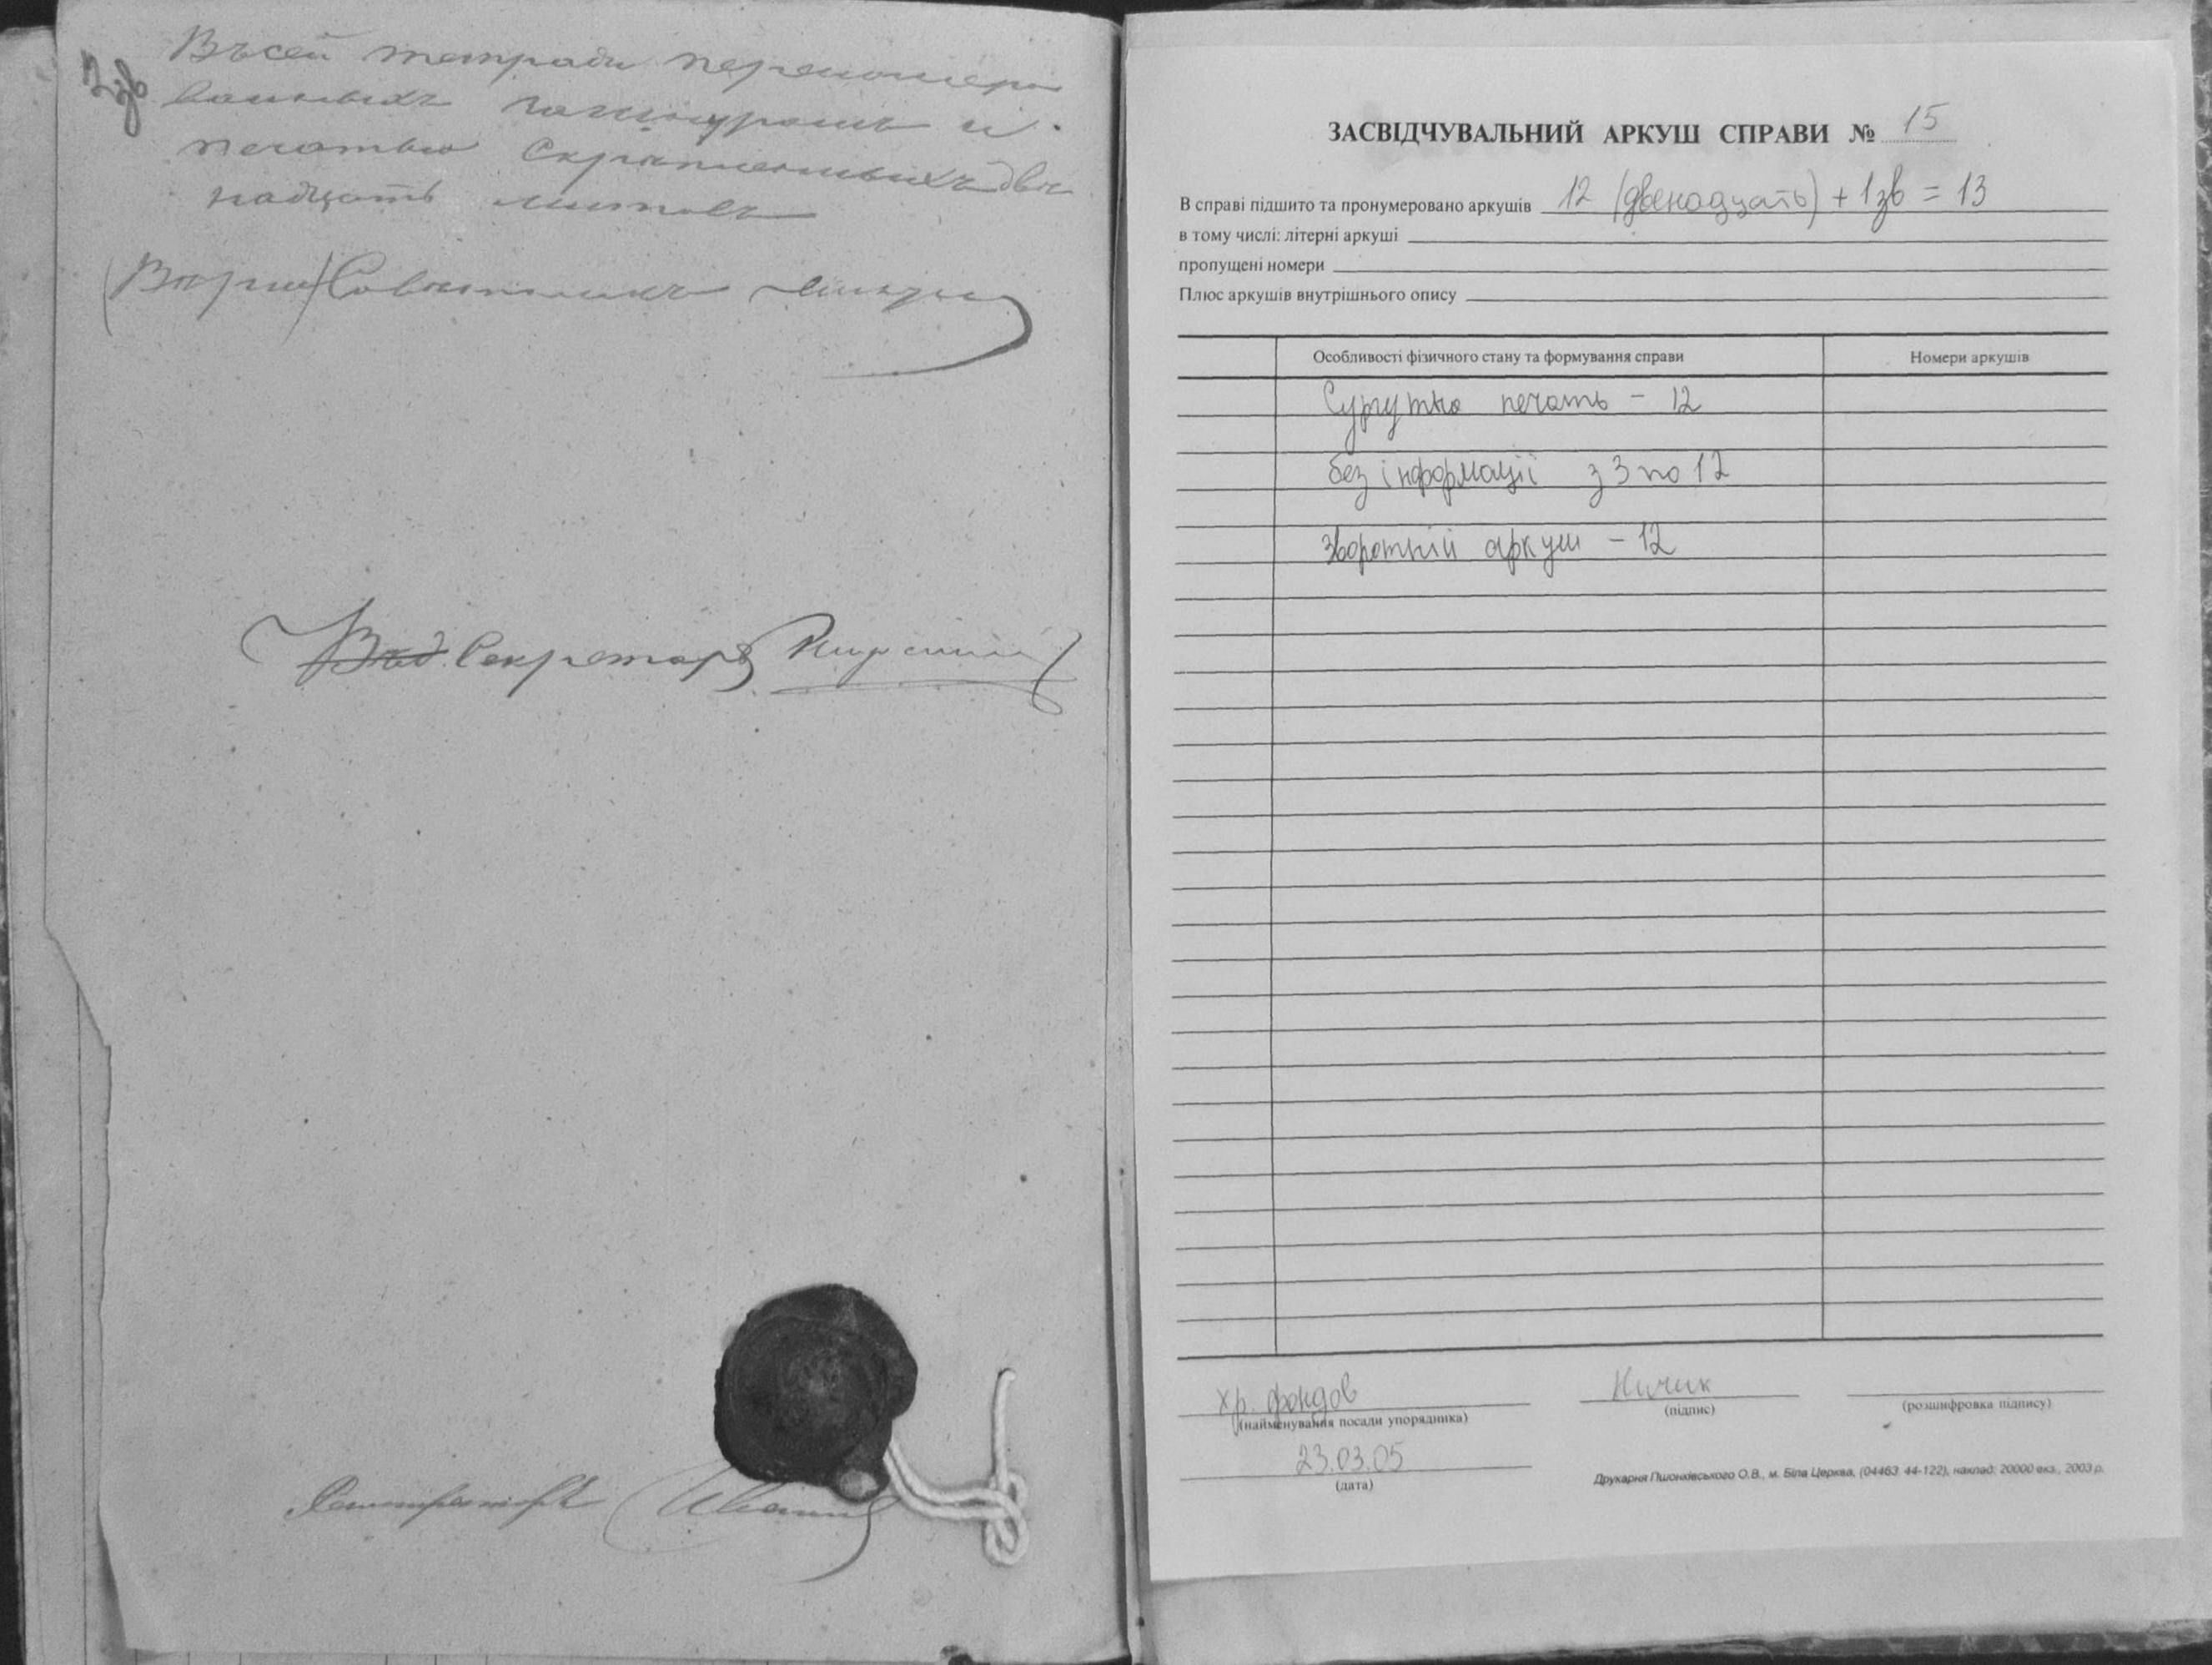 Въ сей тетради перенумеро
ванныхъ и
печатью скрепленныхъ две
надцать листовъ
Советникъ
Секретарь
Регистраторъ
ЗАСВІДЧУВАЛЬНИЙ АРКУШ СПРАВИ № 15
В справі підшито та пронумеровано аркушів 12 (двенадцать) + 1зв = 13
в тому числі: літерні аркуші
пропущені номери
Плюс аркушів внутрішнього опису
Особливості фізичного стану та формування справи Номери аркушів
Сургутна печать - 12
без інформації з 3 по 12
зворотній аркуш - 12
хр. фондов
(найменування посади упорядника) (підпис) (розшифровка підпису)
23.03.05
(дата)
Друкарня Пшонківського О.В., м. Біла Церква, (04463) 44-122), наклад: 20000 екз., 2003 р.